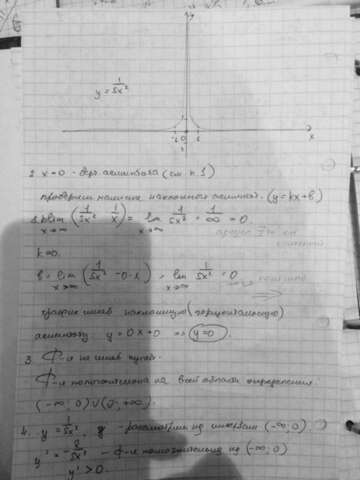 y
y = 1/5x²
x
2. x=0 - верт. асимптота (см. п. 1)
проверим наличие наклонной асимпт. (y = kx+b)
k = lim x→∞ (1/5x² · 1/x) = lim x→∞ 1/5x³ = 1/∞ = 0.
k=0.
b = lim x→∞ (1/5x² - 0·x) = lim x→∞ 1/5x² = 0
график имеет наклонную (горизонтальную)
асимптоту y = 0x+0 => y=0.
3. Ф-я не имеет нулей.
Ф-я положительна на всей области определения
(-∞; 0) ∪ (0; +∞).
4. y = 1/5x², - рассмотрим на интервале (-∞; 0)
y' = - 2/5x³ - ф-я положительна на (-∞; 0)
y' > 0.